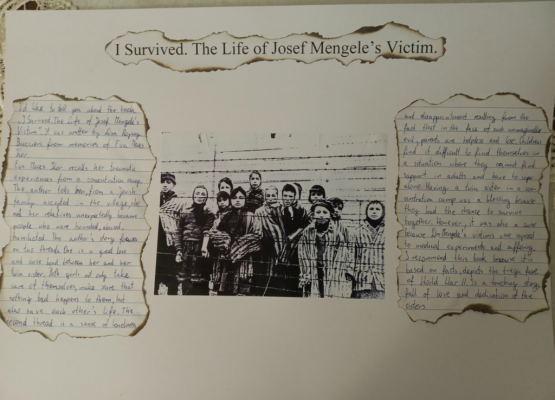 I Survived. The Life of Josef Mengele's Victim.
I'd like to tell you about the book
"I Survived. The Life of Josef Mengele's
Victim". It was written by Lisa Rojany
Buccieri from memories of Eva Mozes
Eva Mozes Kor recalls her traumatic
experiences from a concentration camp.
The author tells how from a Jewish
family accepted in the village, she
and her relatives unexpectedly became
people who were hounded,
humiliated. The author's story focuses
on two threads. One is a good love
and care bond between her and her
twin sister. Both girls not only take
care of themselves, make sure that
nothing bad happens to them, but
also have each other's life. The
second thread is a sense of loneliness
and disappointment resulting from the
fact that in the face of such unimaginable
evil, parents are helpless and lose. Children
find it difficult to find themselves in
a situation where they cannot find
support in adults and have to
alone. Having a twin sister in a con-
centration camp was a blessing because
they had the chance to survive
together. However, it was also a curse
because Dr Mengele's victims were exposed
to medical experiments and suffering.
I recommend this book because it is
based on facts, depicts the tragic fate
of World War II. Is a touching story,
full of love and dedication of the
sisters.